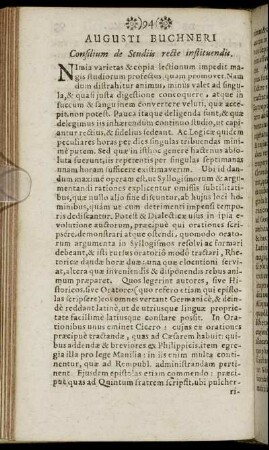 94
AUGUSTI BUCHNERI
Consilium de Studiis recte instituendis.
NImia varietas & copia lectionum impedit ma-
gis studiorum profectus, quam promovet. Nam
dum distrahitur animus, minus valet ad singu-
la, & quasi justa digestione concoquere, atque in
succum & sanguinem convertere veluti, quæ acce-
pit. non potest. Pauca itaque deligenda sunt, & quæ
delegimus iis inhærendum constanter, studio, ut capi-
antur rectius, & fidelius sedeant. Ac Logicæ quidem
peculiares horas per dies singulas tribuendas mini-
me putem. Sed quæ in istis, ac genere hactenus abso-
luta fuerunt, iis repetentis per singulas septimanas
unam horam sufficere existimaverim. Ubi id dan-
dum maxime operæ est, ut Syllogismorum & argu-
mentandi rationes explicentur omissis subtilitati-
bus, quæ nullo alio fine discuntur, ab hujus loci ho-
minibus, quam ut cum detrimenti impensi tempo-
ris dediscantur. Potest & Dialecticæ usus in ipsa e-
volutione auctorum, præcipuè qui orationes scri-
psêre, demonstrari atque ostendi, quomodo orato-
rum argumenta in Syllogismos resolvi ac formari
debeant, & isti rursus oratorio modo tractari, Rhe-
toricæ dandæ horæ duæ, una quæ elocutioni servi-
at, altera quæ inveniendis & disponendis rebus ani-
mum præparet. Quos legerint autores, sive Hi-
storicos, sive Oratores (quo refero etiam qui episto-
las scripsere) eos omnes vertant Germanicè, & dein-
dè reddant latinè, ut de utriusque linguæ proprie-
tate facillimè latiusque constare possit. In Ora-
tionibus unus eminet Cicero: cujus ex orationes
præcipuè tractandæ, quas ad Cæsarem habuit: qui-
bus addendæ & breviores ex Philippicis, item egre-
gia illa pro lege Manilia: in iis enim multa conti-
nentur, quæ ad Rempubl. administrandam perti-
nent. Ejusdem epistolas etiam commendo: præci-
puè quas ad Quintum fratrem scripsit, ubi pulcher-
ri-